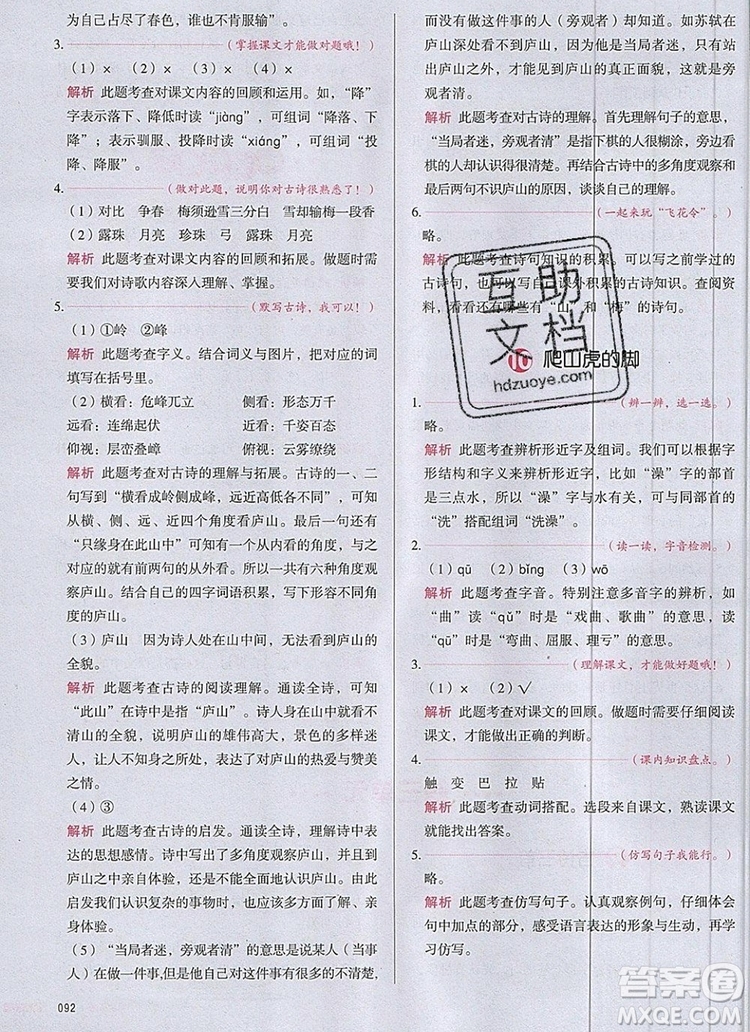 为自己占尽了春色，谁也不肯服输”。
3.（掌握课文才能做对题哦！）
（1）× （2）× （3）× （4）×
解析 此题考查对课文内容的回顾和运用。如，“降”
字表示落下、降低时读“jiàng”，可组词“降落、下
降”；表示驯服、投降时读“xiáng”，可组词“投
降、降服”。
4.（做对此题，说明你对古诗很熟悉了！）
（1）对比 争春 梅须逊雪三分白 雪却输梅一段香
（2）露珠 月亮 珍珠 弓 露珠 月亮
解析 此题考查对课文内容的回顾和拓展。做题时需
要我们对诗歌内容深入理解、掌握。
5.（默写古诗，我可以！）
（1）①岭 ②峰
解析 此题考查字义。结合词义与图片，把对应的词
填写在括号里。
（2）横看：危峰兀立 侧看：形态万千
远看：连绵起伏 近看：千姿百态
仰视：层峦叠嶂 俯视：云雾缭绕
解析 此题考查对古诗的理解与拓展。古诗的一、二
句写到“横看成岭侧成峰，远近高低各不同”，可知
从横、侧、远、近四个角度看庐山。最后一句还有
“只缘身在此山中”可知还有一个内看的角度，与之
对应的就有一个外看的角度，所以一共有六种角度观
察庐山。结合自己的四字词语积累，写写每一种角度
观察庐山的景色特点。
（3）庐山 因为诗人处在山中间，无法看到庐山的
全貌。
解析 此题考查古诗的阅读理解。通读全诗，可知
“此山”在诗中是指“庐山”。诗人身在其中而看不
清山的全貌，说明庐山的雄伟高大，景色的多样变
幻莫测，表达了诗人对庐山的热爱与赞美
之情。
（4）③
解析 此题考查古诗的启发。通读全诗，理解诗中表
达的思想感情。诗中写从多角度观察庐山，并且在
庐山之中亲自体验，还不能全面地认识庐山。由此
启发我们认识复杂的事物时，也应该多角度观察，亲
身体验。
（5）“当局者迷，旁观者清”的意思是说某人（当事
人）在做一件事,但自己对这件事有很多不了解不清楚,
092
而没有做这件事的人（旁观者）却知道。如苏轼在
庐山看庐山，却看不到它的真正面貌，因为他没有站
出庐山之外，才不了解庐山的真面目，是当局者迷，
旁观者清。
解析 此题考查古诗的理解。首先理解句子的意思，
“当局者迷，旁观者清”指下棋的人很糊涂，旁观下
棋的人却认识得很清楚。结合古诗中的多角度观察和
最后两句不识庐山的原因，谈谈自己的理解。
6.（一起来玩“飞花令”。）
略。
解析 此题考查诗句知识的积累。可以写之前学过的
古诗词，也可以写自己课外积累的古诗知识。查阅资
料，看看还有哪些有“山”和“梅”的诗句。
10 爬山虎的脚
1.（辨一辨，选一选。）
略。
解析 此题考查辨析形近字及组词。我们可以根据字
形结构和字义来辨析形近字，例如“澡”字的部首
是三点水，所以“澡”字与水有关，可与同部首的
“洗”搭配组词“洗澡”。
2.（读一读，字音检测。）
（1）qū （2）bǐng （3）wō
解析 此题考查字音。特别注意多音字的辨析，如
“曲”读“qǔ”时，有“戏曲、歌曲”的意思，读
“qū”时有“弯曲、屈服、理亏”的意思。
3.（理解课文，才能做好题哦！）
（1）× （2）√
解析 此题考查对课文的回顾。做题时需要仔细阅读
课文，才能做出正确的判断。
4.（课内知识盘点。）
触 变 巴 拉 贴
解析 此题考查动词搭配。选段来自课文，多阅读课
文就能找出答案。
5.（仿写句子我能行。）
略。
解析 此题考查仿写句子。认真观察例句，仔细体会
句中加点的部分，感受语言表达的形象与生动，再学
习仿写。
互助
文档
hdzuoye.com
答案圈
MXQE.COM